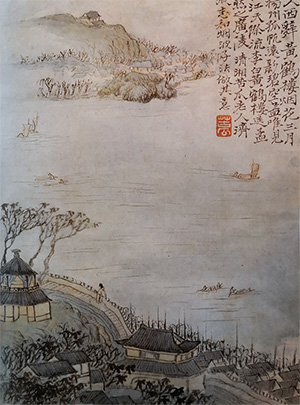 人西辭黃鶴樓烟花三月
揚州孤帆遠影碧空盡惟見
江天際流李白黃鶴樓送孟
然之廣陵清湘苦瓜老人濟